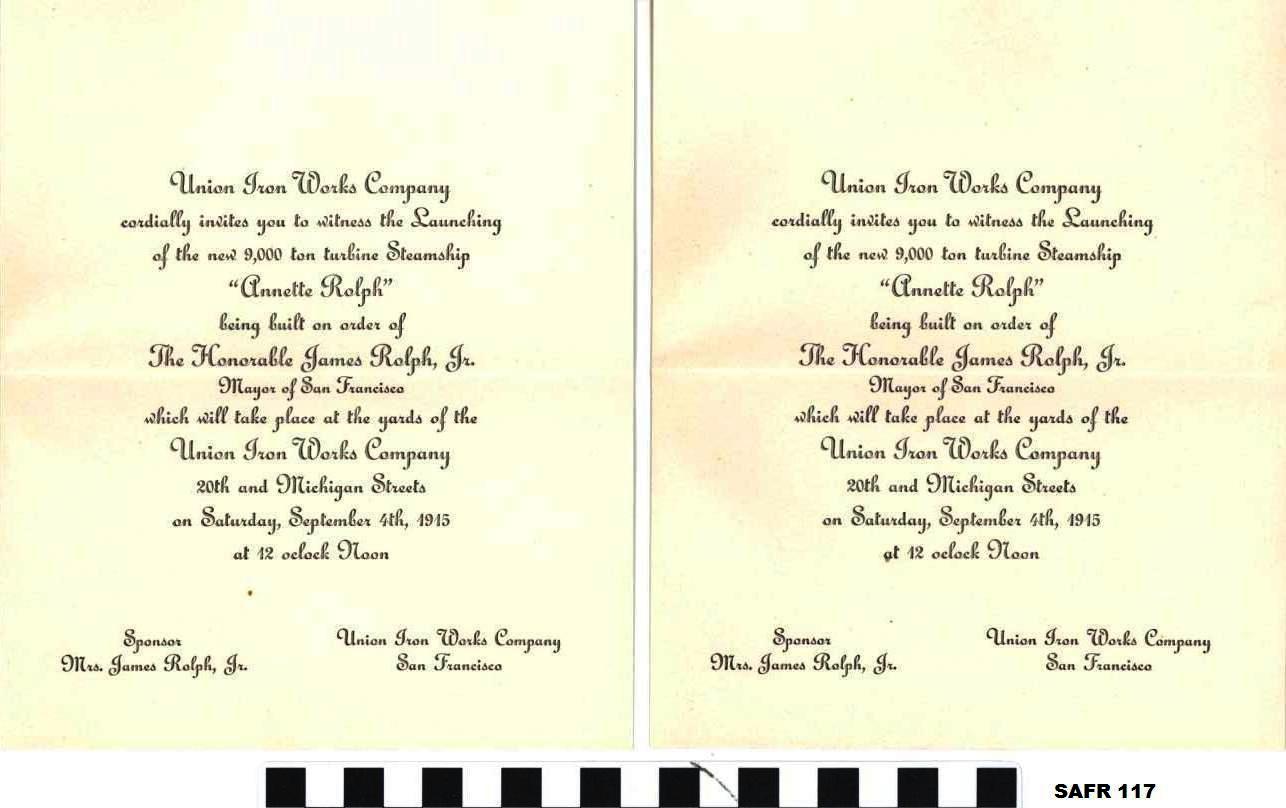 Union Iron Works Company
cordially invites you to witness the Launching
of the new 9,000 ton turbine Steamship
"Annette Rolph"
being built on order of
The Honorable James Rolph, Jr.
Mayor of San Francisco
which will take place at the yards of the
Union Iron Works Company
20th and Michigan Streets
on Saturday, September 4th, 1915
at 12 oclock Noon
Sponsor
Mrs. James Rolph, Jr.
Union Iron Works Company
San Francisco
Union Iron Works Company
cordially invites you to witness the Launching
of the new 9,000 ton turbine Steamship
"Annette Rolph"
being built on order of
The Honorable James Rolph, Jr.
Mayor of San Francisco
which will take place at the yards of the
Union Iron Works Company
20th and Michigan Streets
on Saturday, September 4th, 1915
at 12 oclock Noon
Sponsor
Mrs. James Rolph, Jr.
Union Iron Works Company
San Francisco
SAFR 117